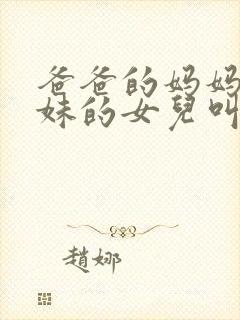 爸爸的妈妈
妹的女兒叫
趙娜